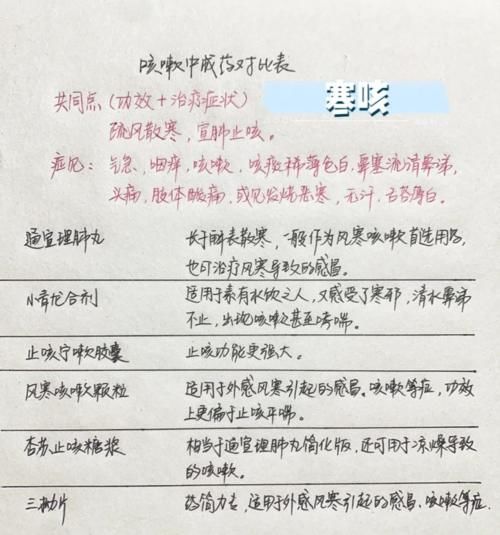 咳嗽中成药对比表
寒咳
共同点(功效+治疗症状)
疏风散寒,宣肺止咳。
症见:气急,咽痒,咳嗽,咳痰稀薄色白,鼻塞流清鼻涕,
头痛,肢体酸痛,或见发烧恶寒,无汗,舌苔薄白。
通宣理肺丸
长于解表散寒,一般作为风寒咳嗽首选用药,
也可治疗风寒导致的感冒。
小青龙合剂
适用于素有水饮之人,又感受了寒邪,清水鼻涕
不止,出现咳嗽甚至哮喘。
止咳宁嗽胶囊
止咳功能更强大。
风寒咳嗽颗粒
适用于外感风寒引起的感冒。咳嗽等症,功效
上更偏于止咳平喘。
杏苏止咳糖浆
相当于通宣理肺丸简化版,还可用于凉燥导致
的咳嗽。
三拗片
药简力专,适用于外感风寒引起的感冒、咳嗽等症.